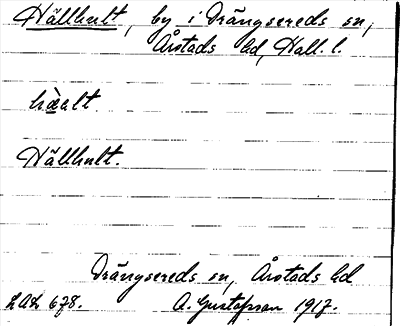 Hällhult, by i Drängsereds sn,
Årstads hd, Hall. l.
hàalt.
Hällhult.
Drängsereds sn, Årstads hd
LAL 678. A. Gustafsson 1917.